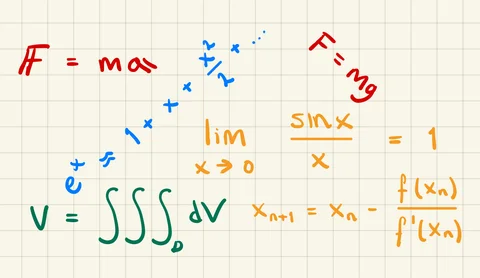 F = ma
e^x ≈ 1 + x + x²/2 + ...
F = mg
lim x→0 sin x / x = 1
V = ∭_D dV
x_{n+1} = x_n - f(x_n) / f'(x_n)